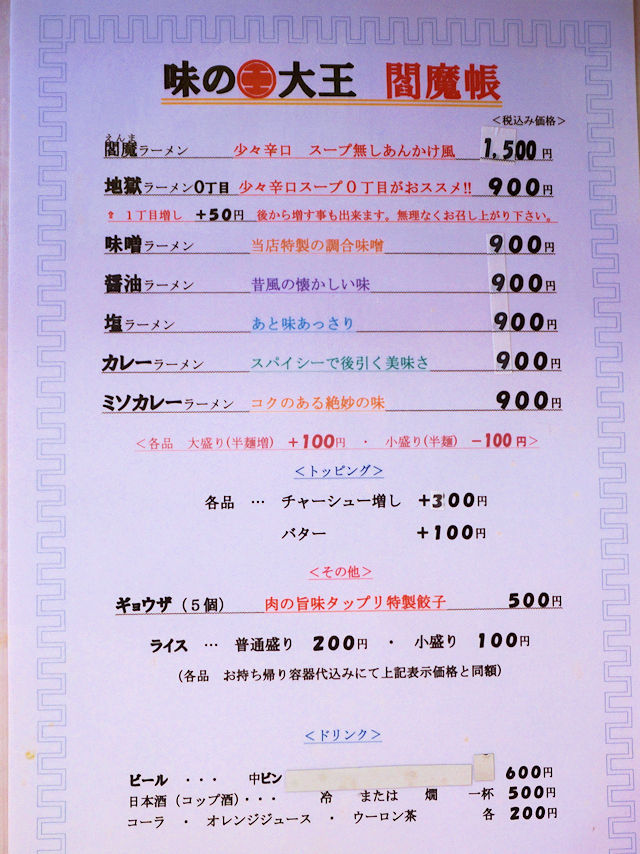 味の王大王 閻魔帳
＜税込み価格＞
えんま
閻魔ラーメン 少々辛口 スープ無しあんかけ風 1,500円
地獄ラーメン0丁目 少々辛口スープ０丁目がおススメ!! 900円
⇧ １丁目増し +50円 後から増す事も出来ます。無理なくお召し上がり下さい。
味噌ラーメン 当店特製の調合味噌 900円
醤油ラーメン 昔風の懐かしい味 900円
塩ラーメン あと味あっさり 900円
カレーラーメン スパイシーで後引く美味さ 900円
ミソカレーラーメン コクのある絶妙の味 900円
＜各品 大盛り(半麺増) +100円 ・ 小盛り(半麺) −100円＞
＜トッピング＞
各品 … チャーシュー増し +300円
バター +100円
＜その他＞
ギョウザ（５個） 肉の旨味タップリ特製餃子 500円
ライス … 普通盛り 200円 ・ 小盛り 100円
（各品 お持ち帰り容器代込みにて上記表示価格と同額）
＜ドリンク＞
ビール ・・・ 中ビン 600円
日本酒（コップ酒）・・・ 冷 または 燗 一杯 500円
コーラ ・ オレンジジュース ・ ウーロン茶 各 200円